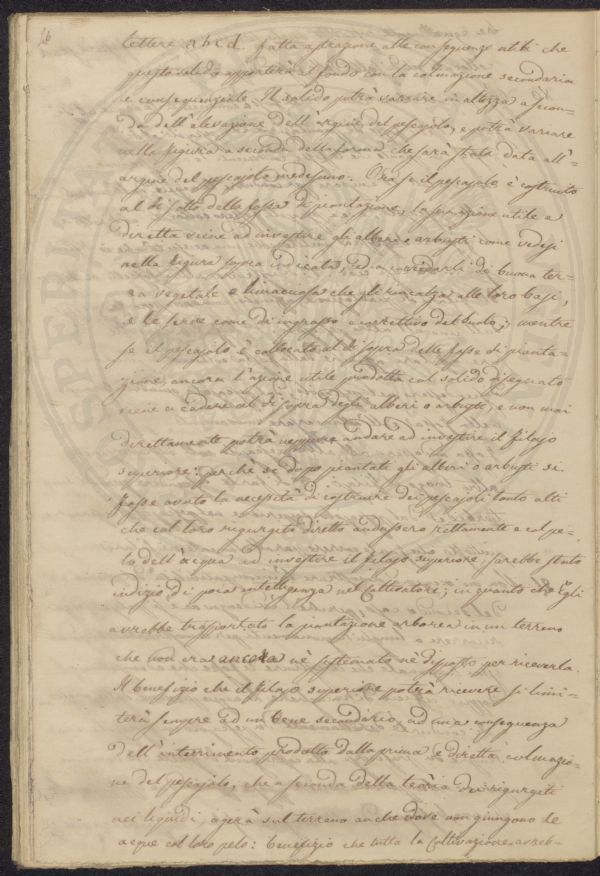 26
lettere abcd. fatta astrazione alle conseguenze utili che
questo solido apporterà al fondo con la colmazione secondaria
e conseguenziale. Il solido potrà variare in altezza a secon-
da dell'elevazione dell'argine del pescajolo, e potrà variare
nella figura a seconda della forma che sarà stata data all'-
argine del pescajolo medesimo. Ora se il pescajolo è costruito
al di sotto della fossa di piantazione, la sua azione utile e
diretta viene ad investire gli alberi o arbusti come vedesi
nella Figura sopra indicata, ed a corredarli di buona ter-
ra vegetale e limacciosa che gli rincalza alle loro basi,
e le serve come di ingrasso e correttivo del suolo; mentre
se il pescajolo è collocato al di sopra delle fosse di pianta-
gione, ancora l'azione utile prodotta col solido disegnato
viene a cadere al di sopra degli alberi o arbusti, e non mai
direttamente potrà neppure andare ad investire il filajo
superiore: perchè se dopo piantate gli alberi o arbusti si
fosse avuto la necessità di costruire dei pescajoli tanto alti
che col loro rigurgito diretto andassero rettamente e col pe-
lo dell'acqua ad investire il filajo superiore, sarebbe stato
indizio di poca intelligenza nel Cultivatore; in quanto che Egli
avrebbe trasportato la piantazione arborea in un terreno
che non era ancora nè sistemato nè disposto per riceverla.
Il benefizio che il filajo superiore potrà ricevere si limi-
terà sempre ad un bene secondario, ad una conseguenza
dell'interrimento prodotto dalla prima e diretta colmazio-
ne del pescajolo, che a seconda della teoria dei rigurgiti
nei liquidi, agerà sul terreno anche dove non giungono le
acque col loro pelo: benefizio che tutta la Coltivazione avreb-